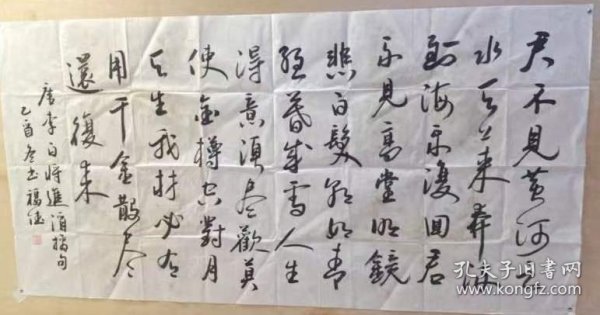 君不见黄河之
水天上来奔流
到海不復回君
不见高堂明鏡
悲白髮朝如青
絲暮成雪人生
得意須尽歡莫
使金樽空對月
天生我材必有
用千金散尽
還復来
唐李白将進酒摘句
乙酉冬书福佳
孔夫子旧书网
www.kongfz.com